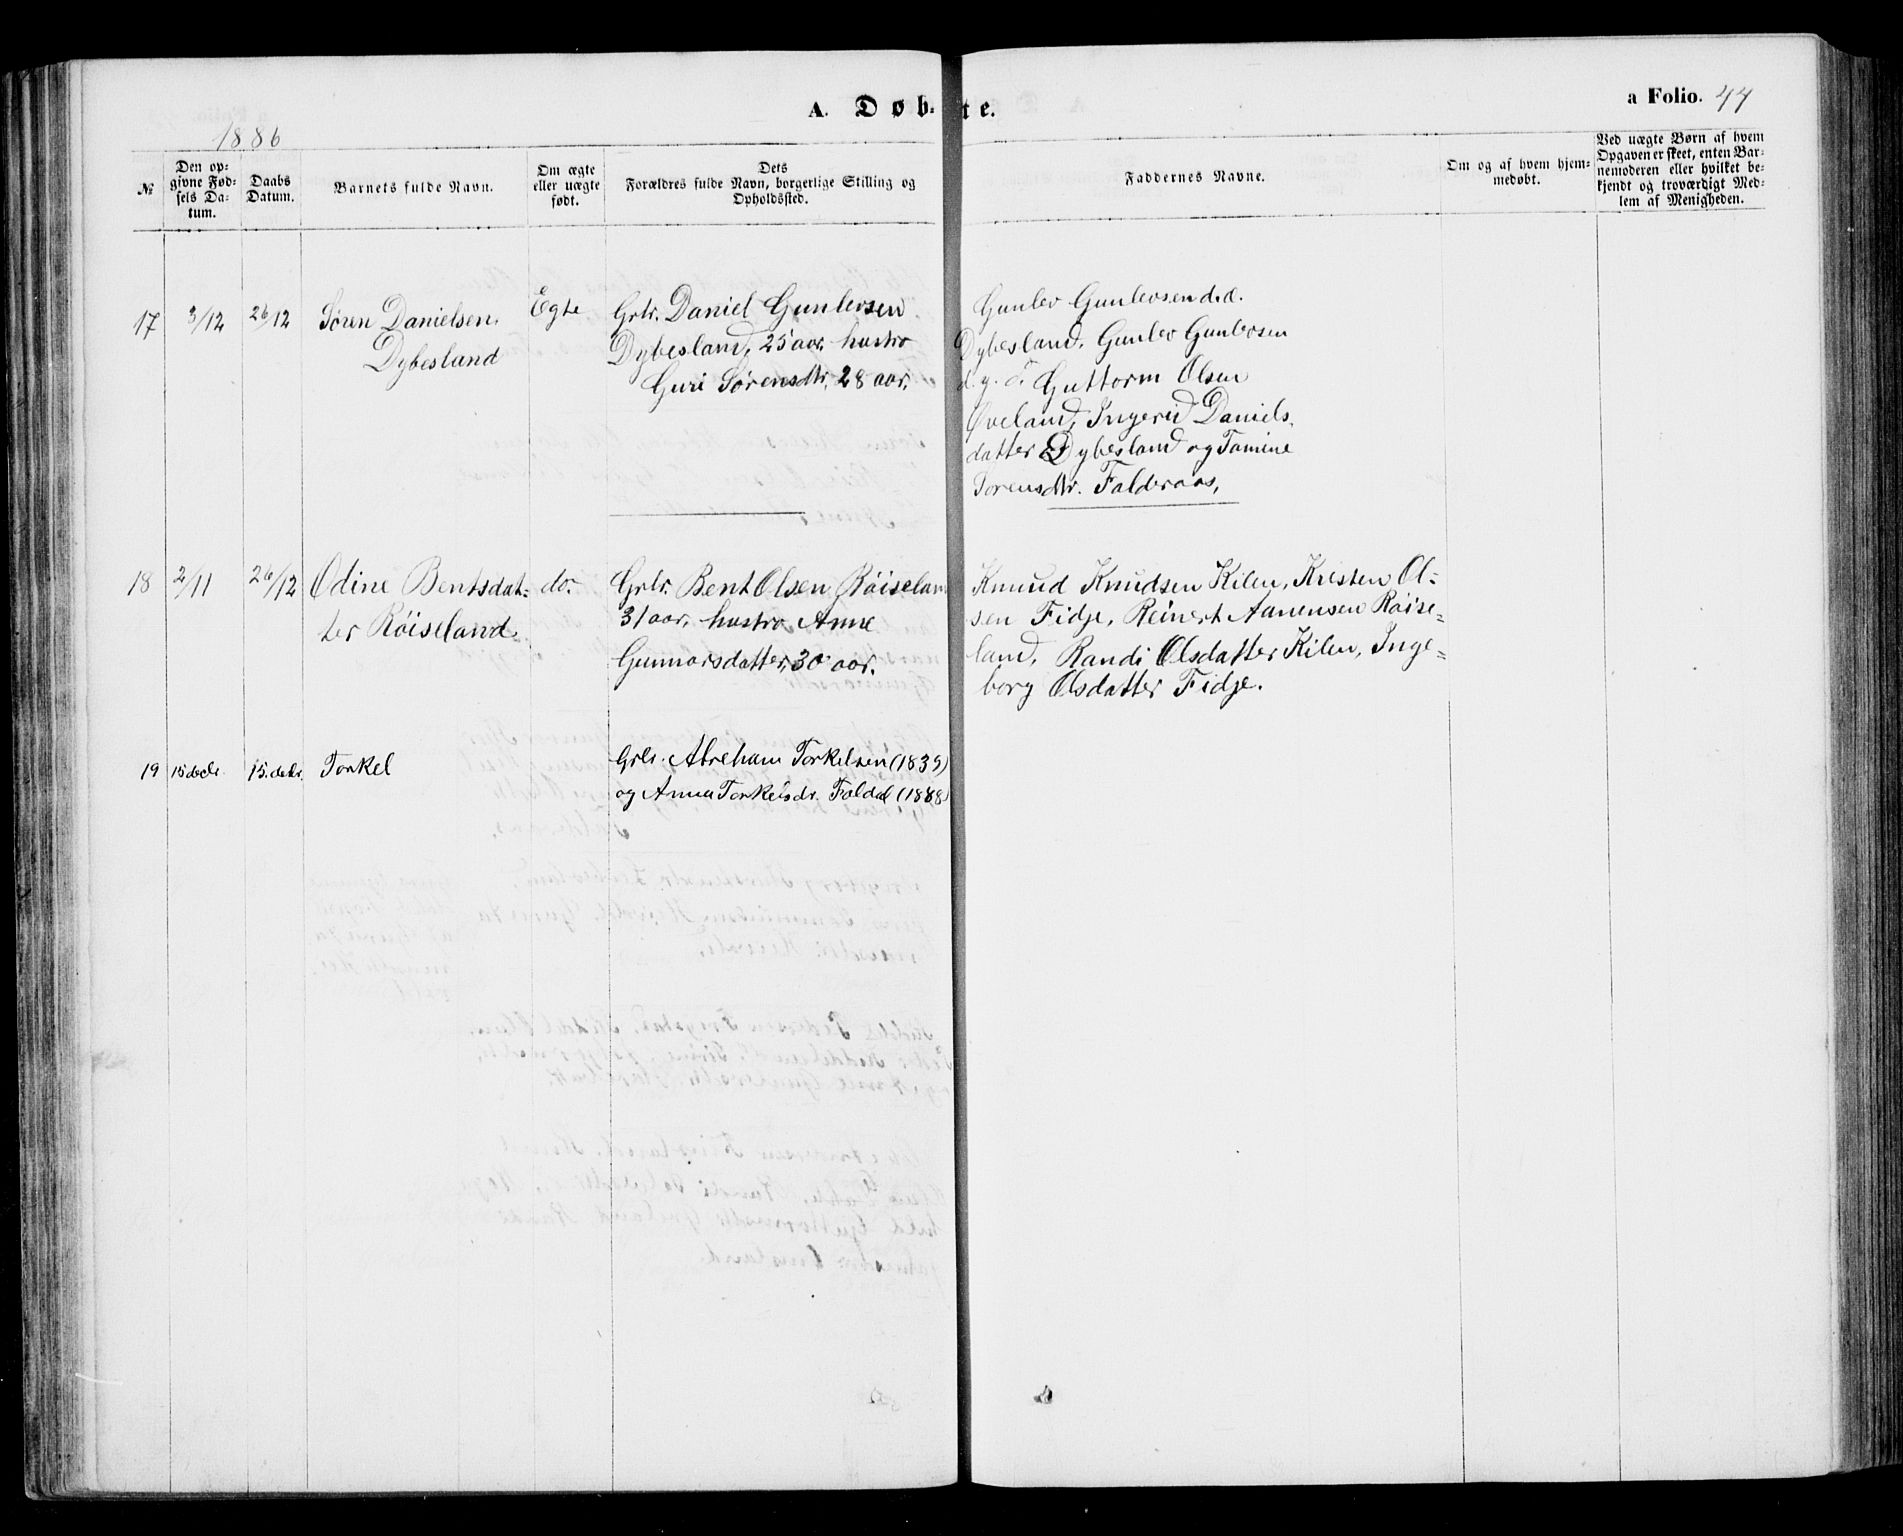 A. Døb-te.
a Folio. 44
1886
№
Den op-
givne Fød-
sels Da-
tum.
Daabs
Datum.
Barnets fulde Navn.
Om ægte
eller uægte
født.
Dets
Forældres fulde Navn, borgerlige Stilling og
Opholdssted.
Faddernes Navne.
Om og af hvem hjem-
medøbt.
Ved uægte Børn af hvem
Opgaven er skeet, enten Bar-
nemoderen eller hvilket be-
kjendt og troværdigt Med-
lem af Menigheden.
17 3/12 26/12 Søren Danielsen
Dybesland
Egte
Grbr. Daniel Gunlevsen
Dybesland, 25 aar, hustro
Guri Sørensdtr, 28 aar.
Gunlev Gunlevsen d.d.
Dybesland. Gunlev Gunlevsen
d.y. Guttorm Olsen
Øveland, Ingerid Daniels-
datter Dybesland og Tomine
Sorensdtr. Falderaas,
18 2/11 26/12 Odine Bentsdat-
ter Röiseland.
do.
Grbr. Bent Olsen Röiseland
31 aar, hustro Anne
Gunnarsdatter, 30 aar.
Knud Knudsen Kilen, Kristen Ol-
sen Fidje, Reinert Aanensen Röise-
land, Randi Olsdatter Kilen, Inge-
borg Olsdatter Fidje.
19 15 decbr. 15. decbr. Torkel
Grbr. Abreham Torkelsen (1839)
og Anna Torkelsdr. Foldal